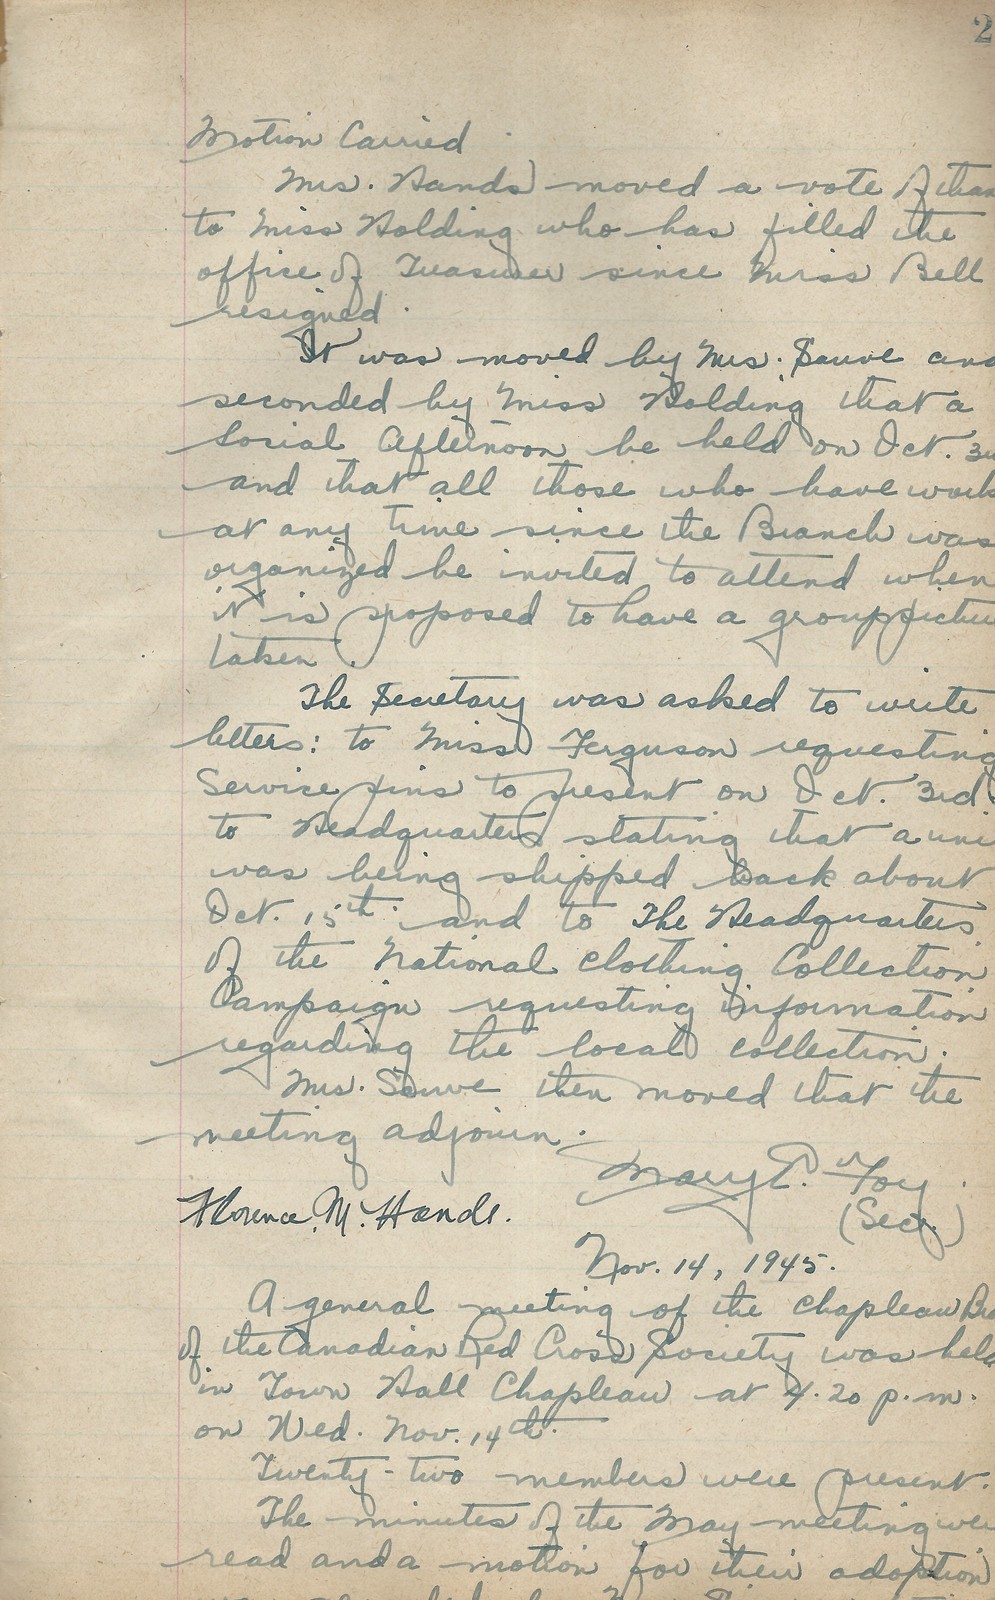 2
Motion Carried
Mrs. Hands moved a vote of than
to Miss Holding who has filled the
office of Treasurer since Miss Bell
resigned.
It was moved by Mrs. Sauve and
seconded by Miss Holding that a
Social Afternoon be held on Oct. 3r
and that all those who have work
at any time since the Branch was
organized be invited to attend when
it is proposed to have a group pictu
taken.
The Secretary was asked to write
letters: to Miss Ferguson requesting
Service pins to present on Oct. 3rd
to Headquarters stating that a uni
was being shipped back about
Oct. 15th. and to The Headquarters
of the National Clothing Collection
Campaign requesting information
regarding the local collection.
Mrs. Sauve then moved that the
meeting adjourn.
Mary E.
Florence M. Hands.
(Secy.)
Nov. 14, 1945.
A general meeting of the Chapleau Bra
of the Canadian Red Cross Society was held
in Town Hall Chapleau at 4.20 p.m.
on Wed. Nov. 14th.
Twenty-two members were present.
The minutes of the May meeting wer
read and a motion for their adoption